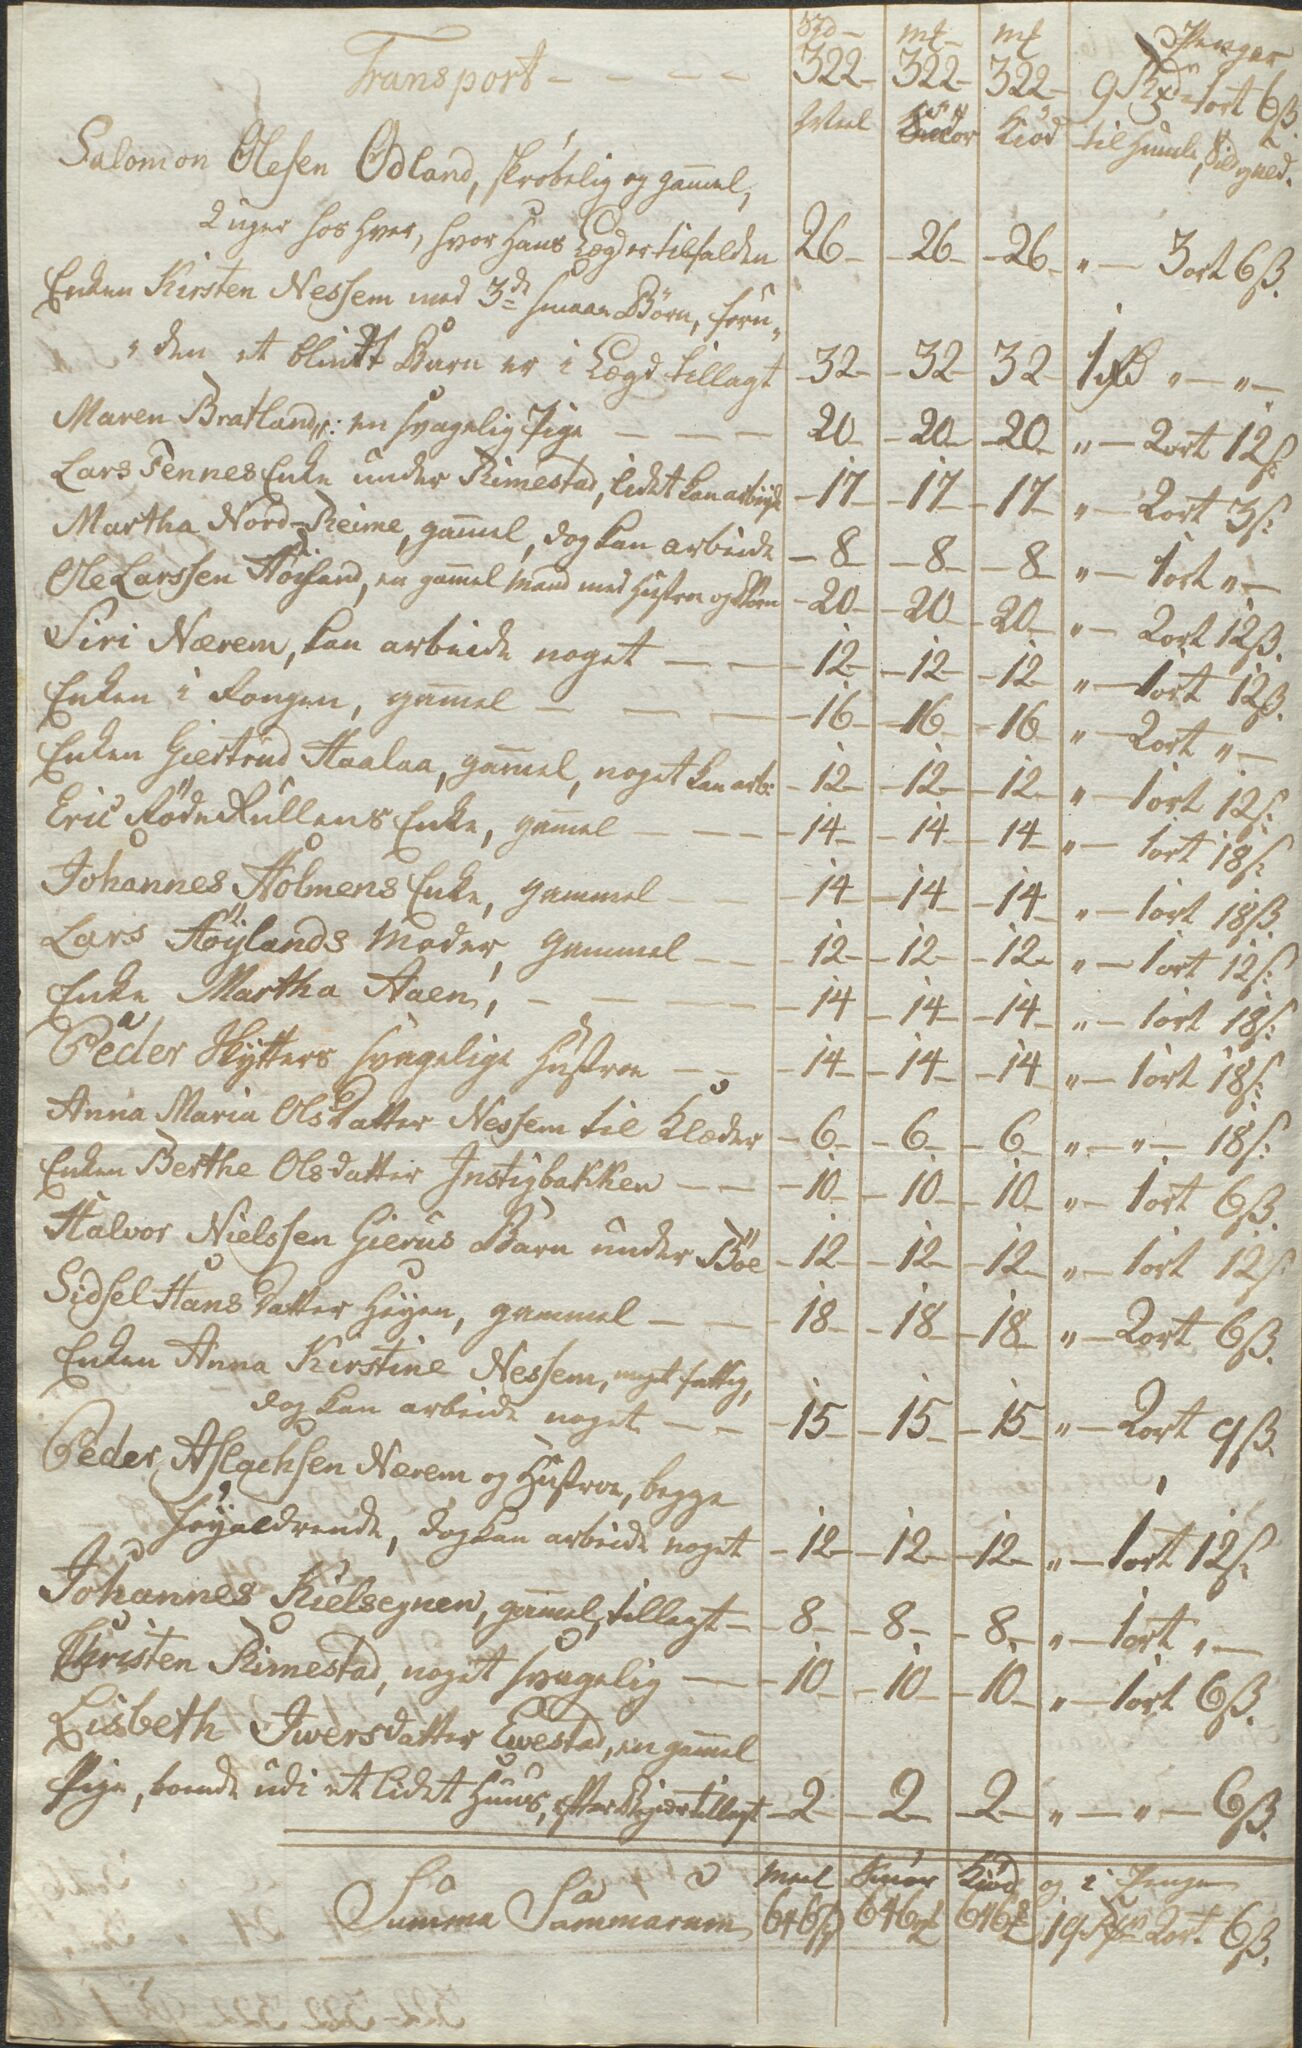 Spd – mk – mk Penger
Transport – – – – 322 – 322 – 322 – 9 Rdr 1 ort 6 ß.
Meel Smör Kiöd til Humle, Sild og
Salomon Olesen Odland, skröbelig og gammel,
2 uger hos hver, hvor Hans Lægd er tilfalden 26 – 26 – 26 – " – 3 ort 6 ß.
Enken Kirsten Nessem med 3de smaae Börn, foru-
" den et blindt Barn er i Lægd tillagt 32 – 32 – 32 – 1 rd " – " –
Maren Bratland, en svagelig Pige – – – 20 – 20 – 20 – " – 2 ort 12 ß.
Lars Tennes Enke under Rimestad, lidet kan arbeyde – 17 – 17 – 17 – " – 2 ort 3 ß:
Martha Nord-Reime, gammel, dog kan arbeide – 8 – 8 – 8 – " – 1 ort " –
Ole Larssen Höiland, en gammel Mand med Hustroe og Börn – 20 – 20 – 20 – " – 2 ort 12 ß.
Siri Nærem, kan arbeide noget – – – 12 – 12 – 12 – " – 1 ort 12 ß.
Enken i Rongen, gammel – – – 16 – 16 – 16 – " – 2 ort " –
Enken Giertrud Haalaa, gammel, noget kan arb: – 12 – 12 – 12 – " – 1 ort 12 ß:
Eric RödeKullens Enke, gammel – – – 14 – 14 – 14 – " – 1 ort 18 ß:
Johannes Holmens Enke, gammel – – 14 – 14 – 14 – " – 1 ort 18 ß.
Lars Höylands Moder, gammel – – 12 – 12 – 12 – " – 1 ort 12 ß:
Enke Martha Aaen, – – – 14 – 14 – 14 – " – 1 ort 18 ß:
Peder Skytters svagelige Hustroe – – 14 – 14 – 14 – " – 1 ort 18 ß:
Anna Maria OlsDatter Nessem til Klæder – 6 – 6 – 6 – " – " – 18 ß:
Enken Berthe Olsdatter Instigbakken – – 10 – 10 – 10 – " – 1 ort 6 ß.
Halvor Nielssen Gierus Barn under Böe – 12 – 12 – 12 – " – 1 ort 12 ß
Sidsel HansDatter Höyen, gammel – – 18 – 18 – 18 – " – 2 ort 6 ß.
Enken Anna Kirstine Nessem, meget fattig,
dog kan arbeide noget – – 15 – 15 – 15 – " – 2 ort 9 ß.
Peder Aslachsen Nærem og Hustroe, begge
höyældrende, dog kan arbeide noget – 12 – 12 – 12 – " – 1 ort 12 ß
Johannes Kielsegnen, gammel, tillagt – 8 – 8 – 8 – " – 1 ort " –
Christen Rimestad, noget svagelig – – 10 – 10 – 10 – " – 1 ort 6 ß.
Lisbeth Iwersdatter Ewestad, en gammel
Pige, boende udi et lidet Huus, efter Begiær tillagt – 2 – 2 – 2 – " – " – 6 ß.
Meel Smör Kiöd og i Penge
Summa Summarum 646 646 mk 646 mk 19 2 ort 6 ß.